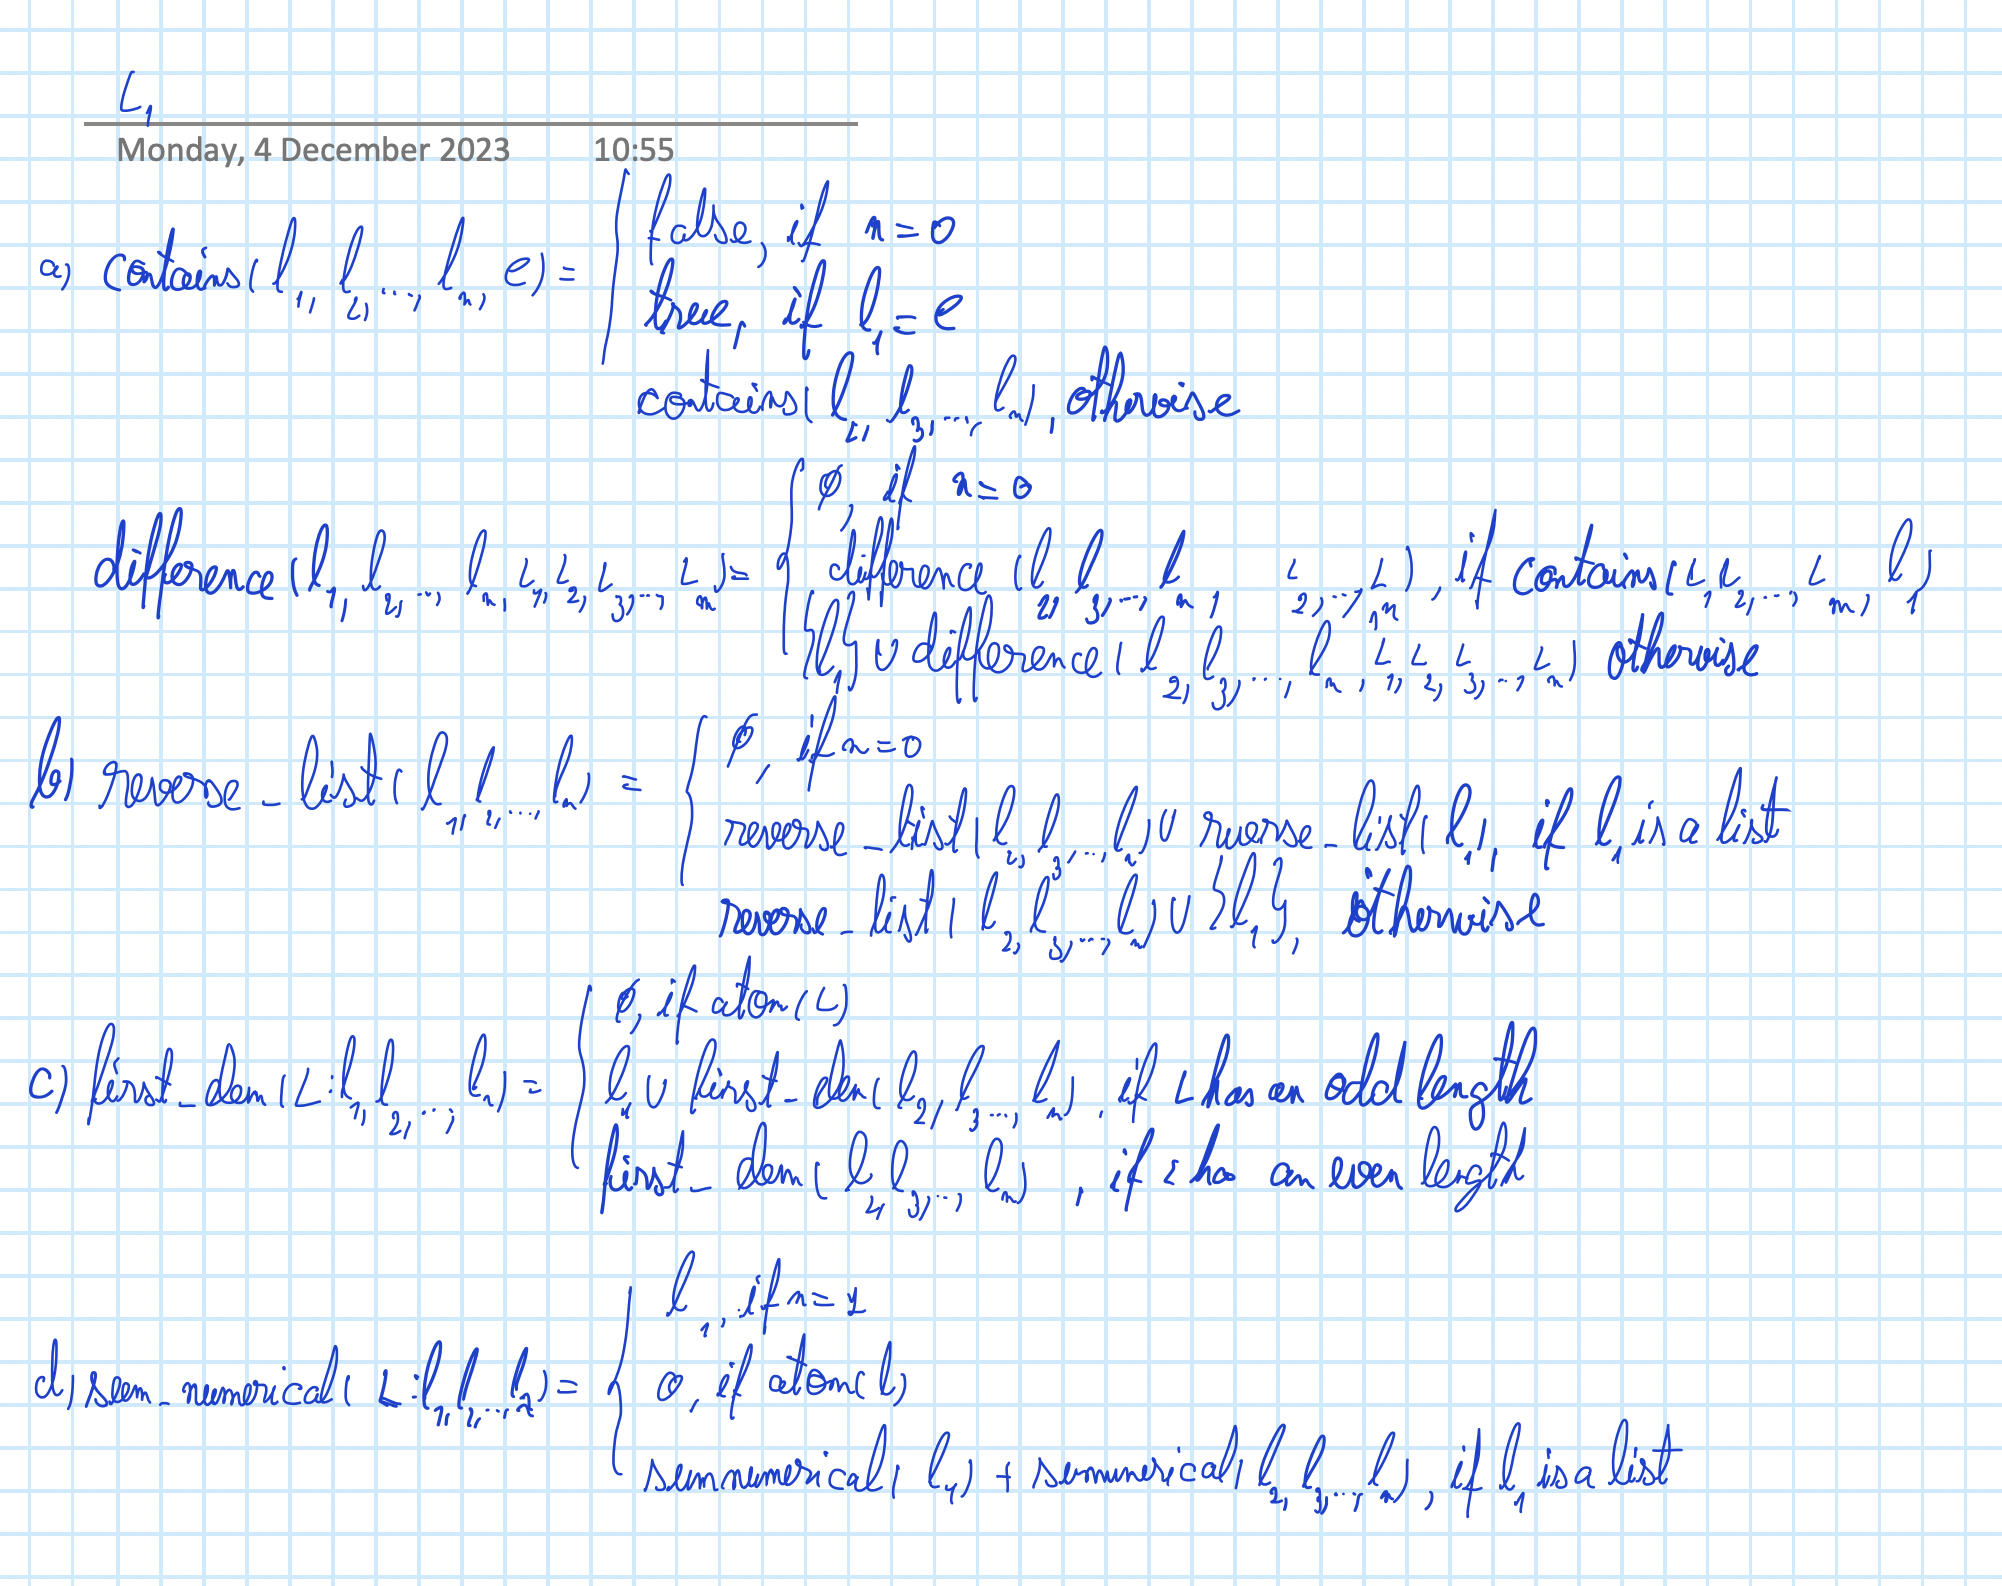 L₁
Monday, 4 December 2023 10:55
a) contains(l₁, l₂, ..., lₙ, e) = { false, if n = 0
true, if l₁ = e
contains(l₂, l₃, ..., lₙ), otherwise
∅, if n = 0
difference(l₁, l₂, ..., lₙ, L₁, L₂, L₃, ..., Lₘ) = { difference(l₂, l₃, ..., lₙ, L₂, ..., Lₙ), if contains(L₁, L₂, ..., Lₘ, l₁)
{l₁} ∪ difference(l₂, l₃, ..., lₙ, L₁, L₂, L₃, ..., Lₙ) otherwise
∅, if n = 0
b) reverse_list(l₁, l₂, ..., lₙ) = { reverse_list(l₂, l₃, ..., lₙ) ∪ reverse_list(l₁), if l₁ is a list
reverse_list(l₂, l₃, ..., lₙ) ∪ {l₁}, otherwise
∅, if atom(L)
c) first_elem(L: l₁, l₂, ..., lₙ) = { l₁ ∪ first_elem(l₂, l₃, ..., lₙ), if L has an odd length
first_elem(l₂, l₃, ..., lₙ), if L has an even length
l₁, if n = 1
d) sum_numerical(L: l₁, l₂, ..., lₙ) = { 0, if atom(l)
sumnumerical(l₁) + sumnumerical(l₂, l₃, ..., lₙ), if l₁ is a list